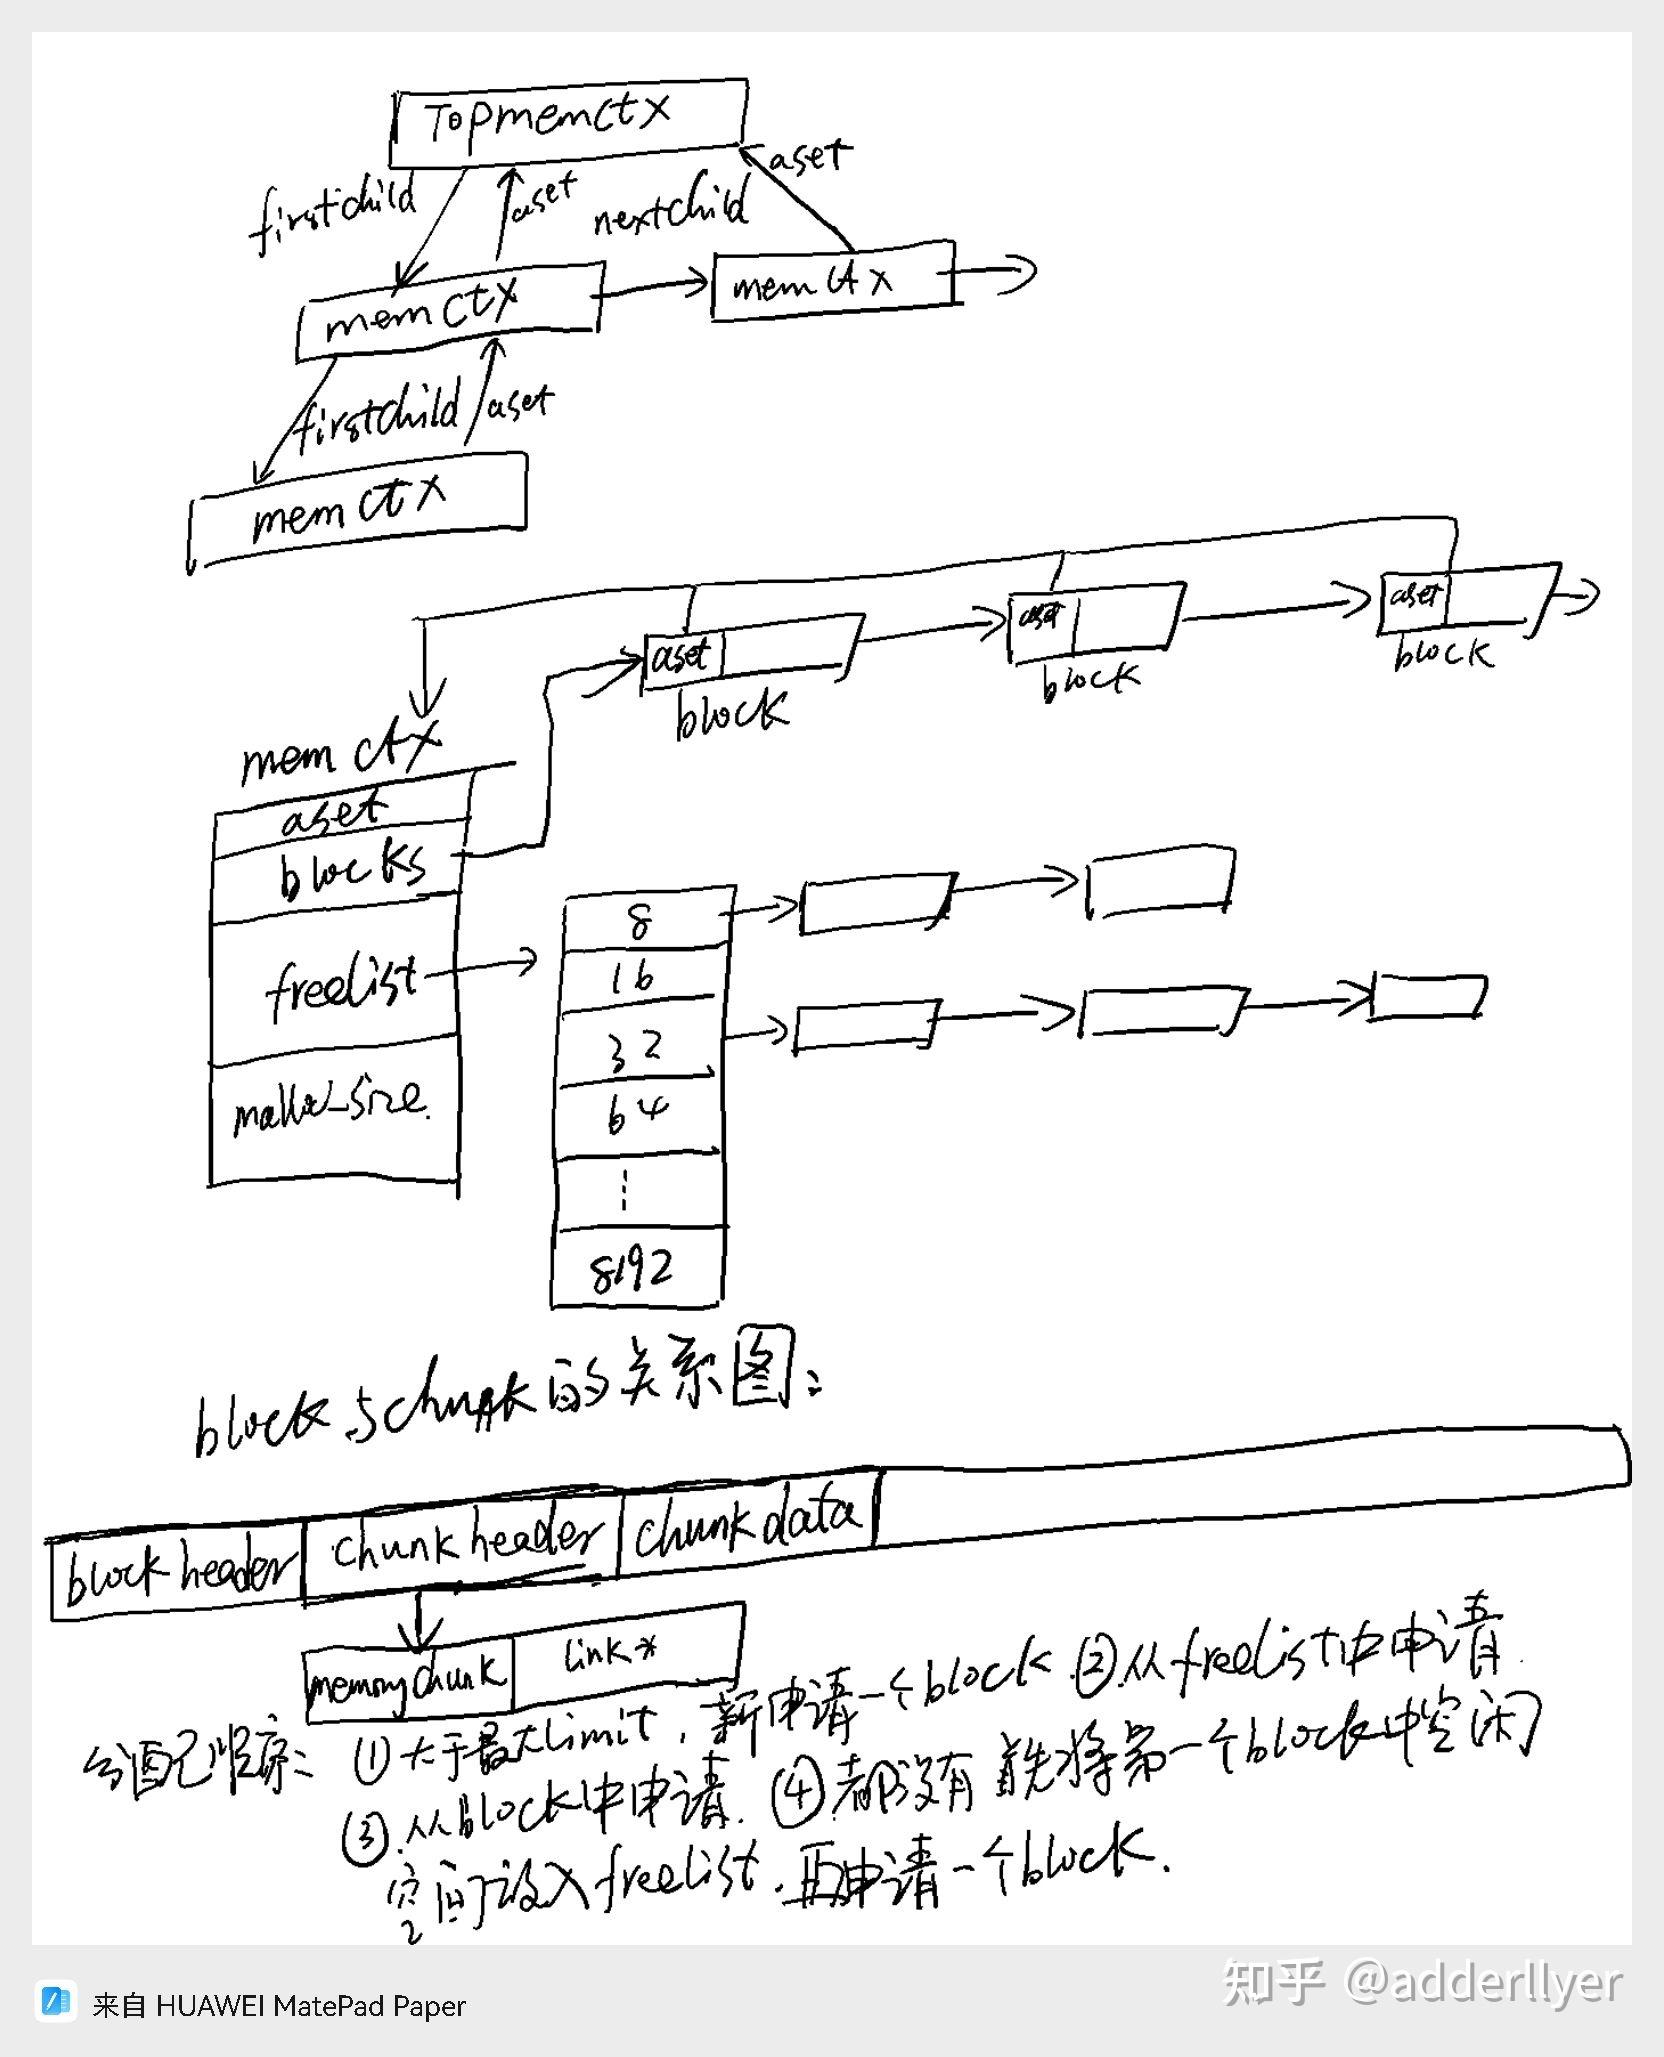 Topmemctx
aset
firstchild
aset
nextchild
memctx
memctx
firstchild
aset
memctx
aset
aset
aset
block
block
block
memctx
aset
blocks
freelist
8
16
32
64
⋮
8192
block与chunk的关系图:
block header
chunk header
chunk data
memorychunk
link*
分配顺序: ①大于最大limit,新申请一个block. ②.从freelist中申请.
③.从block中申请. ④都没有 首先将第一个block中空闲
空间放入freelist.再申请一个block.
来自 HUAWEI MatePad Paper
知乎 @adderllyer